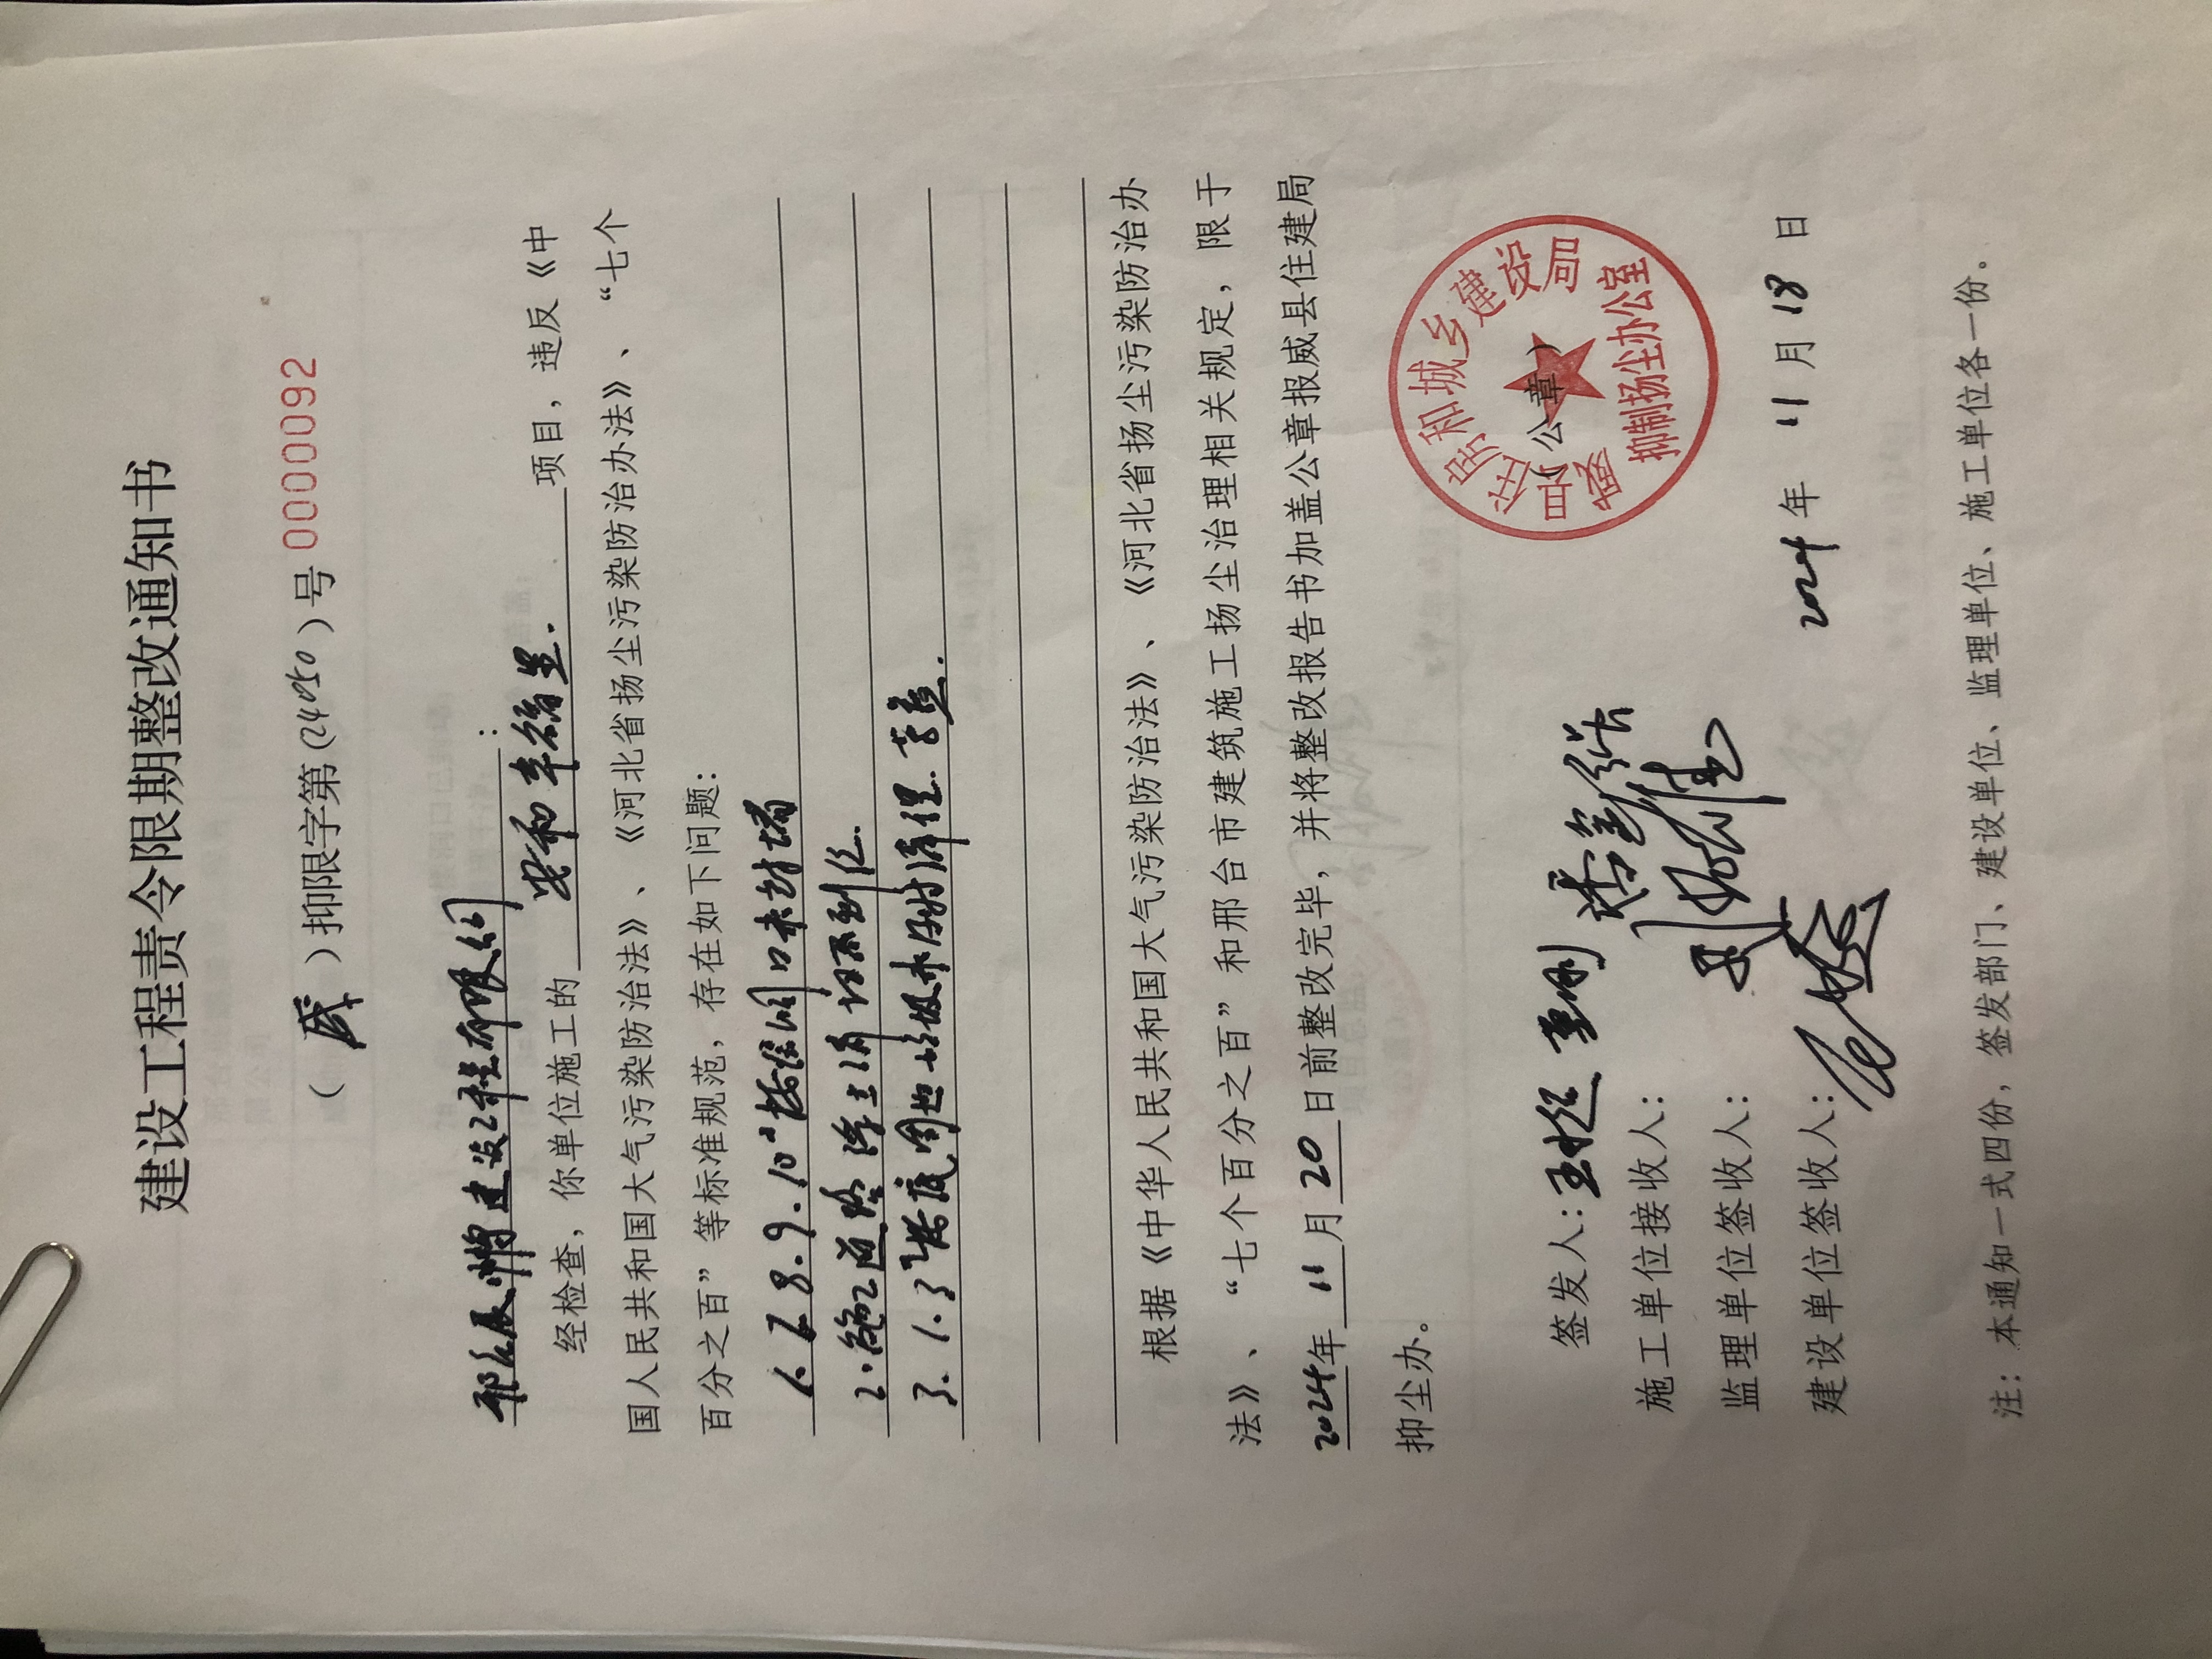 建设工程责令限期整改通知书
（威）抑限字第(24050)号 0000092
建设工程有限公司：
经检查，你单位施工的 安和幸福里. 项目，违反《中
国人民共和国大气污染防治法》、《河北省扬尘污染防治办法》、“七个
百分之百”等标准规范，存在如下问题：
1. 7.8.9.10#楼 洞口未封堵
2.施工道路浮土清扫不到位.
3. 1.3#楼底周边 未及时清理.苫盖.
根据《中华人民共和国大气污染防治法》、《河北省扬尘污染防治办
法》、“七个百分之百”和邢台市建筑施工扬尘治理相关规定，限于
2024年11月20日前整改完毕，并将整改报告书加盖公章报威县住建局
抑尘办。
签发人：
施工单位接收人：
监理单位签收人：
建设单位签收人：
（公章）
威县住房和城乡建设局
抑制扬尘办公室
2024年11月18日
注：本通知一式四份，签发部门、建设单位、监理单位、施工单位各一份。